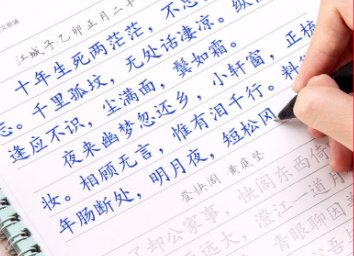 江城子乙卯正月二十
十年生死两茫茫，不思
。千里孤坟，无处话凄凉。纵
逢应不识，尘满面，鬓如霜。
夜来幽梦忽还乡，小轩窗，正梳
妆。相顾无言，惟有泪千行。料
年肠断处，明月夜，短松冈
登快阁 黄庭坚
了却公家事，快阁东西倚
远大，澄江一道月
青眼聊因